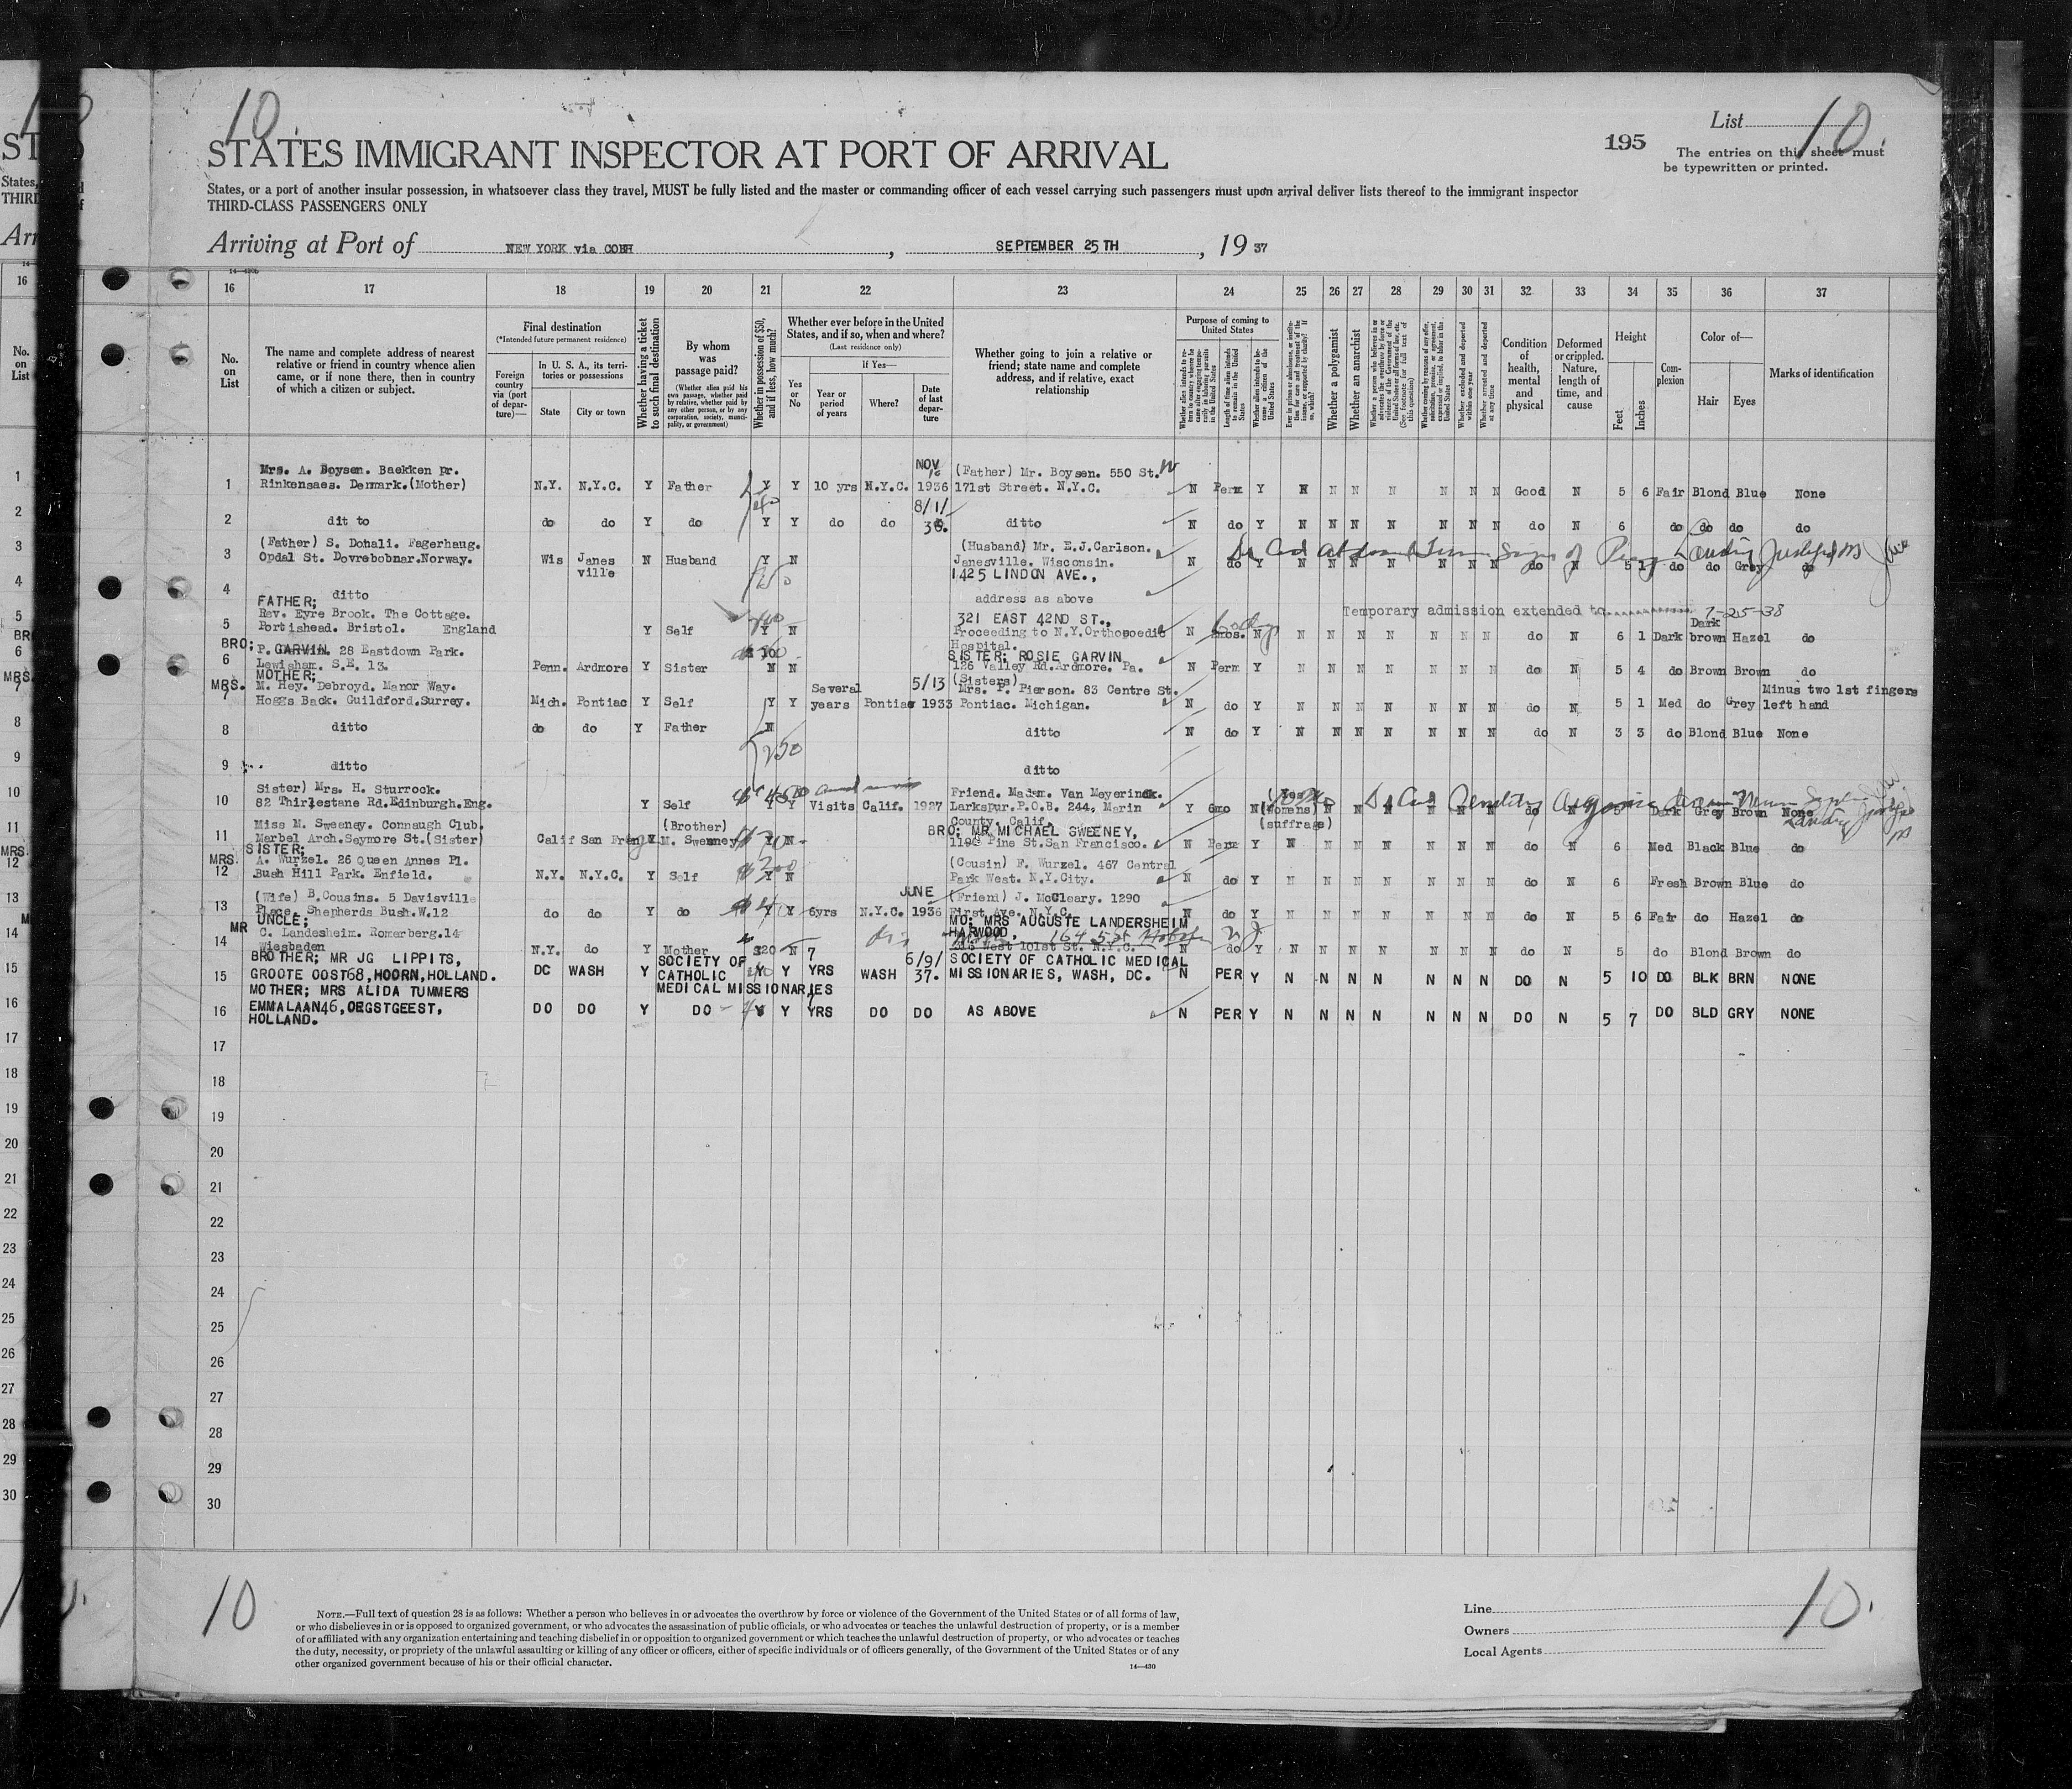 10.
List 10.
195
STATES IMMIGRANT INSPECTOR AT PORT OF ARRIVAL
The entries on this sheet must
be typewritten or printed.
States, or a port of another insular possession, in whatsoever class they travel, MUST be fully listed and the master or commanding officer of each vessel carrying such passengers must upon arrival deliver lists thereof to the immigrant inspector
THIRD-CLASS PASSENGERS ONLY
Arriving at Port of NEW YORK via COBH, SEPTEMBER 25TH, 19 37
16 17 18 19 20 21 22 23 24 25 26 27 28 29 30 31 32 33 34 35 36 37
No. on List
The name and complete address of nearest
relative or friend in country whence alien
came, or if none there, then in country
of which a citizen or subject.
Final destination
(*Intended future permanent residence)
Foreign country via (port of departure)—
In U. S. A., its territories or possessions
State
City or town
Whether having a ticket to such final destination
By whom was passage paid?
(Whether alien paid his own passage, whether paid by relative, whether paid by any other person, or by any corporation, society, municipality, or government)
Whether in possession of $50, and if less, how much?
Whether ever before in the United States, and if so, when and where?
(Last residence only)
Yes or No
If Yes—
Year or period of years
Where?
Date of last departure
Whether going to join a relative or
friend; state name and complete
address, and if relative, exact
relationship
Purpose of coming to United States
Length of time alien intends to remain in the United States
Whether alien intends to become a citizen of the United States
Whether a polygamist
Whether an anarchist
Whether excluded and deported within one year
Whether arrested and deported at any time
Condition of health, mental and physical
Deformed or crippled. Nature, length of time, and cause
Height
Feet
Inches
Complexion
Color of—
Hair
Eyes
Marks of identification
1 Mrs. A. Boysen. Baekken pr.
Rinkensaes. Denmark.(Mother) N.Y. N.Y.C. Y Father Y Y 10 yrs N.Y.C. NOV 1936 (Father) Mr. Boysen. 550 St. W
171st Street. N.Y.C. N Perm Y N N N N N N N Good N 5 6 Fair Blond Blue None
2 dit to do do Y do Y Y do do 8/1/ 36. ditto N do Y N N N N N N N do N 6 do do do do
3 (Father) S. Donali. Fagerhaug.
Opdal St. Dovrebobnar.Norway. Wis Janes ville N Husband Y N (Husband) Mr. E.J.Carlson.
Janesville. Wisconsin.
1425 LINDON AVE., N do Y N N N N N N N do N 5 1 do do Grey do
4 ditto address as above
Temporary admission extended to 7-25-38
5 FATHER;
Rev. Eyre Brook. The Cottage.
Portishead. Bristol. England Y Self Y N 321 EAST 42ND ST.,
Proceeding to N.Y.Orthopoedic
Hospital. N 6mos. N N N N N N N N do N 6 1 Dark Dark brown Hazel do
6 BRO; P. GARVIN. 28 Eastdown Park.
Lewisham. S.E. 13. Penn. Ardmore Y Sister N N SISTER; ROSIE GARVIN
126 Valley Rd.Ardmore. Pa. N Perm Y N N N N N N N do N 5 4 do Brown Brown do
7 MOTHER;
MRS. M. Hey. Debroyd. Manor Way.
Hoggs Back. Guildford.Surrey. Mich. Pontiac Y Self Y Y Several years Pontiac 5/13 1933 (Sisters)
Mrs. P. Pierson. 83 Centre St.
Pontiac. Michigan. N do Y N N N N N N N do N 5 1 Med do Grey Minus two 1st fingers
left hand
8 ditto do do Y Father N ditto N do Y N N N N N N N do N 3 3 do Blond Blue None
9 ditto ditto
10 Sister) Mrs. H. Sturrock.
82 Thirlestane Rd.Edinburgh.Eng. Y Self Y Visits Calif. 1927 Friend. Madam. Van Meyerinck.
Larkspur.P.O.B. 244, Marin
County. Calif. Y 6mo N (Yes
(Womens)
(suffrage) N N N N N N do N 5 Dark Grey Brown None
11 Miss M. Sweeney. Connaugh Club.
Marbel Arch.Seymore St.(Sister) Calif San Fran Y (Brother)
M. Sweeney N BRO; MR MICHAEL SWEENEY,
Pine St.San Francisco. N Perm Y N N N N N N N do N 6 Med Black Blue do
12 SISTER;
MRS. A. Wurzel. 26 Queen Annes Pl.
Bush Hill Park. Enfield. N.Y. N.Y.C. Y Self $300 Y N (Cousin) F. Wurzel. 467 Central
Park West. N.Y.City. N do Y N N N N N N N do N 6 Fresh Brown Blue do
13 (Wife) B.Cousins. 5 Davisville
Place. Shepherds Bush.W.12 do do Y do Y Y 6yrs N.Y.C. JUNE 1936 (Friend) J. McCleary. 1290
First Ave. N.Y.C. N do Y N N N N N N N do N 5 6 Fair do Hazel do
14 UNCLE;
MR C. Landesheim. Romerberg.14
Wiesbaden N.Y. do Y Mother $20 N MO; MRS AUGUSTE LANDERSHEIM
HARWOOD, 164 5 St
West 101st St. N.Y.C. N do Y N N N N N N N do N 5 do Blond Brown do
15 BROTHER; MR JG LIPPITS,
GROOTE OOST68, HOORN, HOLLAND. DC WASH Y SOCIETY OF
CATHOLIC
MEDICAL MISSIONARIES Y Y 7 YRS WASH 6/9/ 37. SOCIETY OF CATHOLIC MEDICAL
MISSIONARIES, WASH, DC. N PER Y N N N N N N N DO N 5 10 DO BLK BRN NONE
16 MOTHER; MRS ALIDA TUMMERS
EMMALAAN46, OEGSTGEEST,
HOLLAND. DO DO Y DO Y Y 7 YRS DO DO AS ABOVE N PER Y N N N N N N N DO N 5 7 DO BLD GRY NONE
17
18
19
20
21
22
23
24
25
26
27
28
29
30
10
NOTE.—Full text of question 28 is as follows: Whether a person who believes in or advocates the overthrow by force or violence of the Government of the United States or of all forms of law,
or who disbelieves in or is opposed to organized government, or who advocates the assassination of public officials, or who advocates or teaches the unlawful destruction of property, or is a member
of or affiliated with any organization entertaining and teaching disbelief in or opposition to organized government or which teaches the unlawful destruction of property, or who advocates or teaches
the duty, necessity, or propriety of the unlawful assaulting or killing of any officer or officers, either of specific individuals or of officers generally, of the Government of the United States or of any
other organized government because of his or their official character.
14—430
Line
Owners
Local Agents
10.